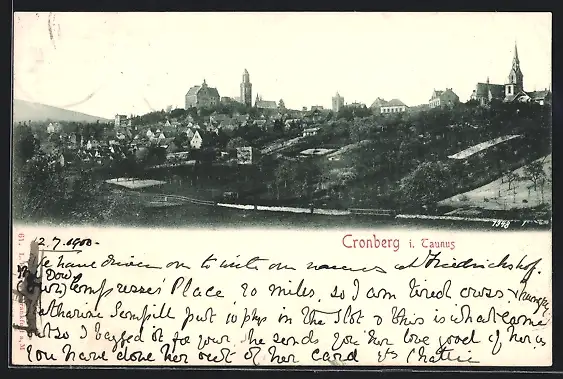 Cronberg i. Taunus
2.7.1900.
We have driven on to write our names at Friedrichshof.
(Dow Empresses' Place, 20 miles, so I am tired cross & hungry
Catharine Sempill put 10 phgs in the slot & this is what came
out so I begged it for your, she sends you her love good of her, as
you have done her out of her card